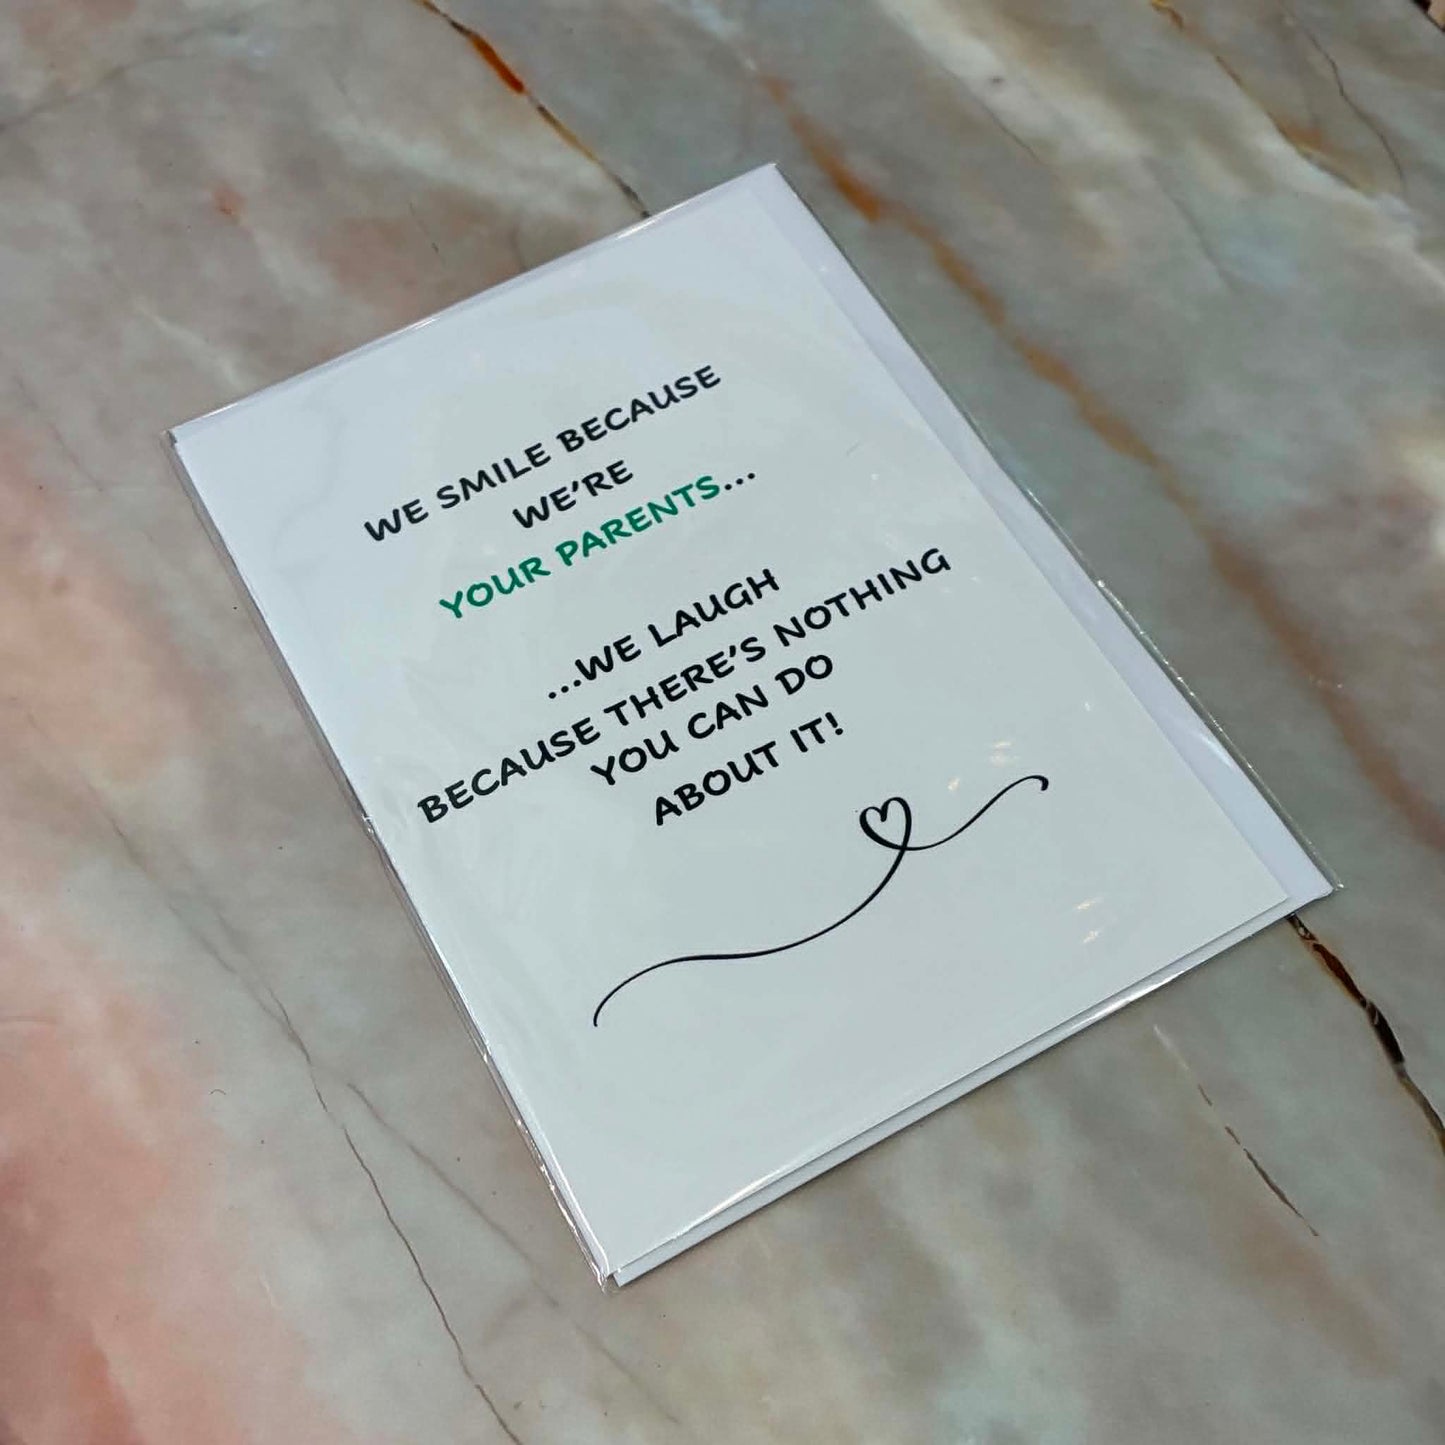 WE SMILE BECAUSE
WE'RE
YOUR PARENTS...
...WE LAUGH
BECAUSE THERE'S NOTHING
YOU CAN DO
ABOUT IT!